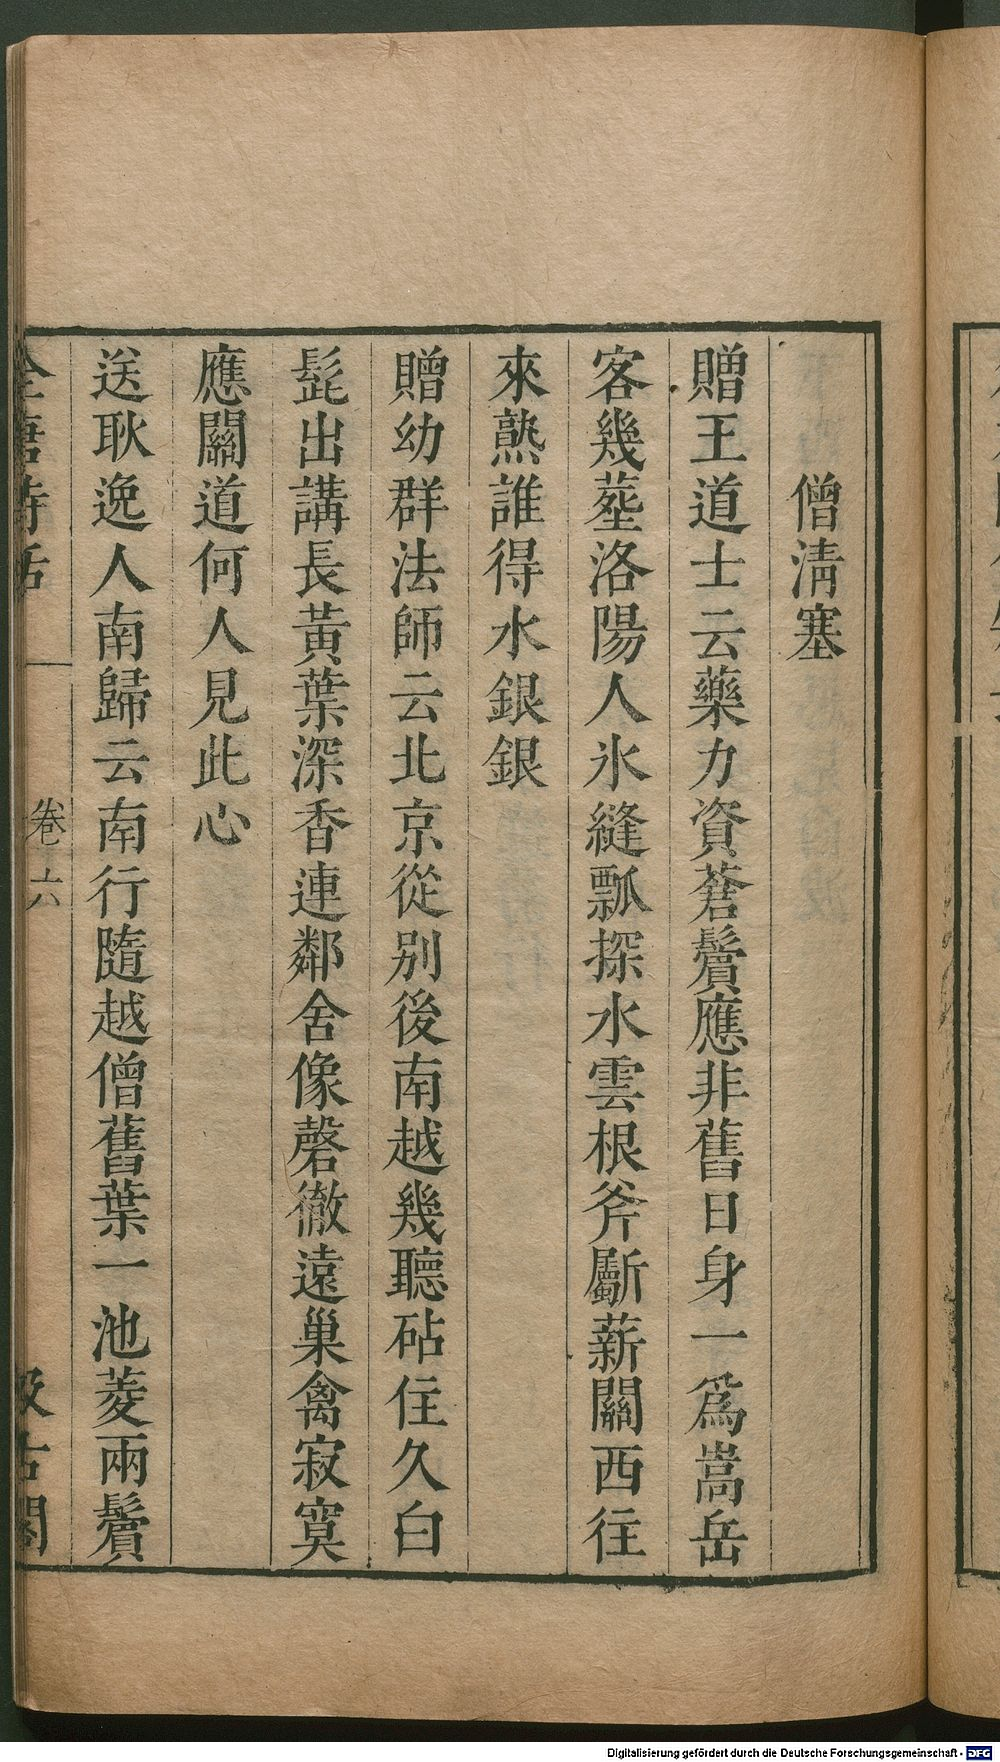 僧淸塞
贈王道士云藥力資蒼鬢應非舊日身一爲嵩岳
客幾塟洛陽人氷縫瓢探水雲根斧斸薪關西往
來熟誰得水銀銀
贈幼群法師云北京從別後南越幾聽砧住久白
髭出講長黃葉深香連鄰舍像磬徹遠巢禽寂寞
應關道何人見此心
送耿逸人南歸云南行隨越僧舊葉一池菱兩鬢
全唐詩話 卷六 汲古閣
Digitalisierung gefördert durch die Deutsche Forschungsgemeinschaft - DFG